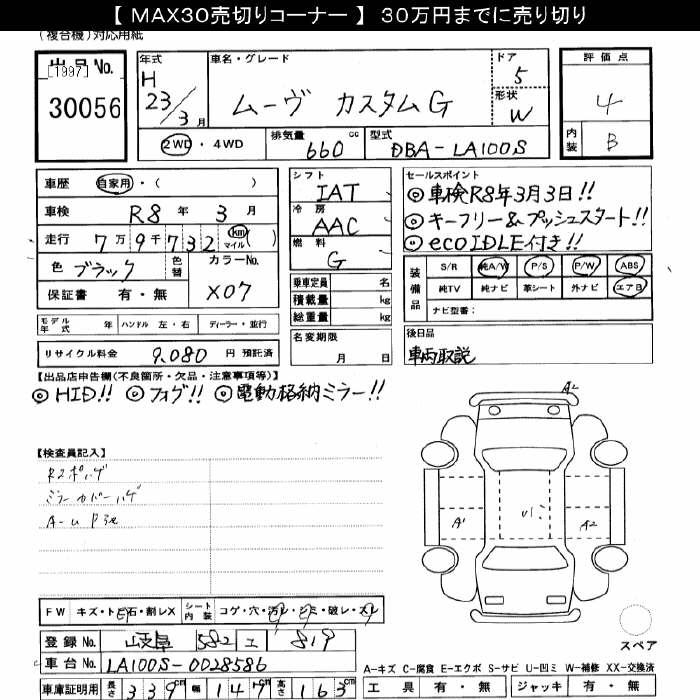 【 MAX30売切りコーナー 】 30万円までに売り切り
(複合機)対応用紙
出品No. [1997] 30056
年式 H 23/3月
車名・グレード ムーヴ カスタムG
ドア 5
形状 W
評価点 4
内装 B
2WD・4WD
排気量 660 cc
型式 DBA-LA100S
車歴 自家用・( )
車検 R8年 3月
走行 7万9千732 km マイル ( )
色 ブラック 色替
カラーNo. X07
保証書 有・無
シフト IAT
冷房 AAC
燃料 G
乗車定員 名
積載量 kg
総重量 kg
名変期限 月 日
セールスポイント
◎車検R8年3月3日!!
◎キーフリー&プッシュスタート!!
◎eco IDLE付き!!
装備品
S/R 純A/W P/S P/W ABS
純TV 純ナビ 革シート 外ナビ エアB
ナビ型番:
モデル年式 年 ハンドル 左・右 ディーラー・並行
リサイクル料金 9.080 円 預託済
後日品
車両取説
【出品店申告欄(不良箇所・欠品・注意事項等)】
◎HID!! ◎フォグ!! ◎電動格納ミラー!!
【検査員記入】
ミラーカバーハゲ
A2
A1
A2
FW キズ・ト石・割レX
シート内装 コゲ・穴・汚レ・シミ・破レ・スレ
登録No. 岐阜 582 エ 819
車台No. LA100S-0028586
車庫証明用 長さ 339cm 幅 147cm 高さ 163cm
スペア
A-キズ C-腐食 E-エクボ S-サビ U-凹ミ W-補修 XX-交換済
工具 有・無 ジャッキ 有・無